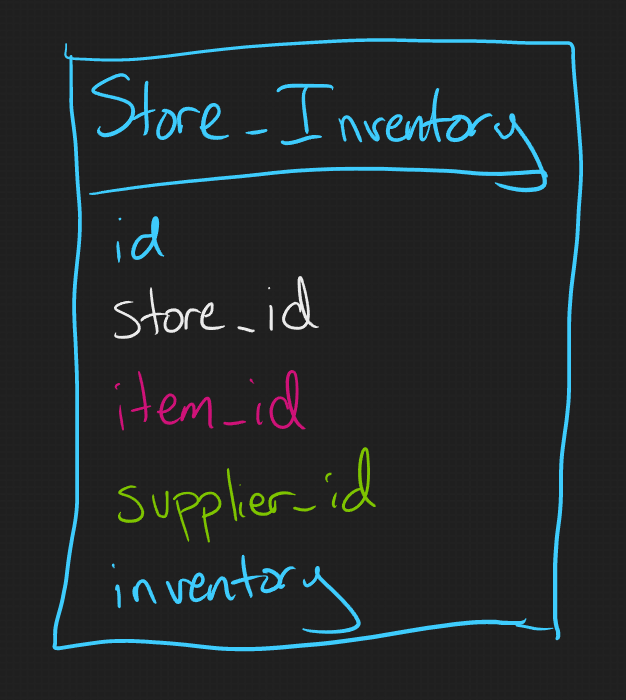 Store_Inventory
id
store_id
item_id
supplier_id
inventory